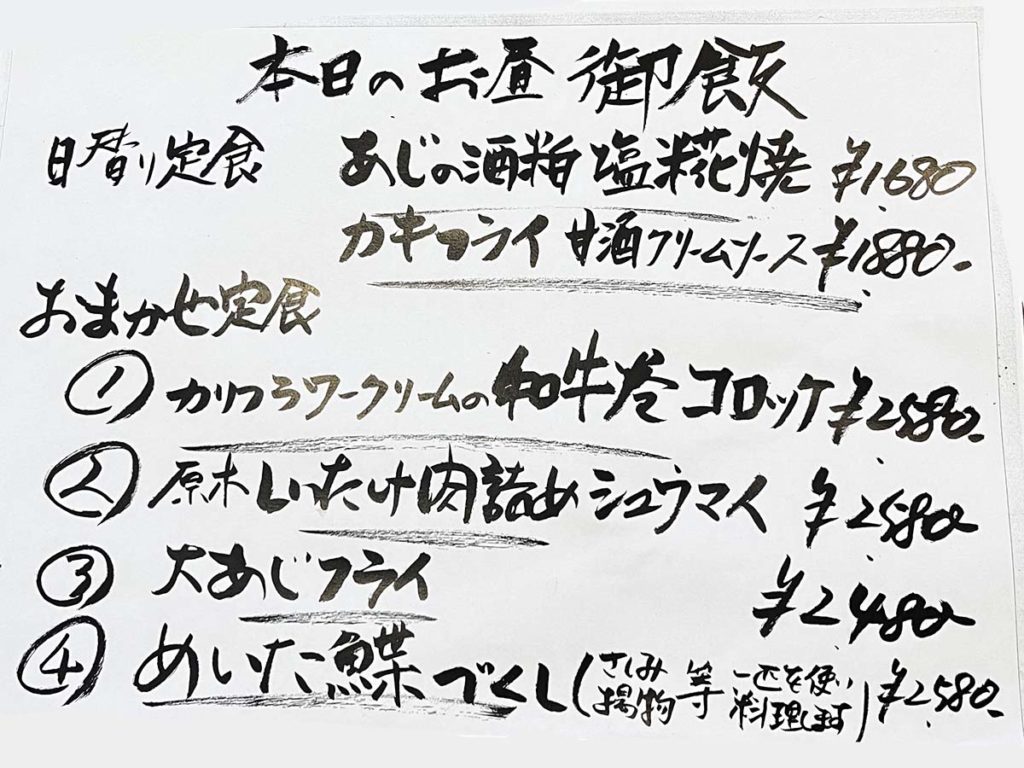 本日のお昼御飯
日替り定食 あじの酒粕塩糀焼 ¥1,680
カキフライ 甘酒クリームソース ¥1,880-
おまかせ定食
① カリフラワークリームの和牛巻コロッケ ¥2,580-
② 原木しいたけ肉詰めシュウマイ ¥2,580-
③ 大あじフライ ¥2,480-
④ めいた鰈づくし(さしみ 揚物 等 一匹を使い 料理します) ¥2,580-